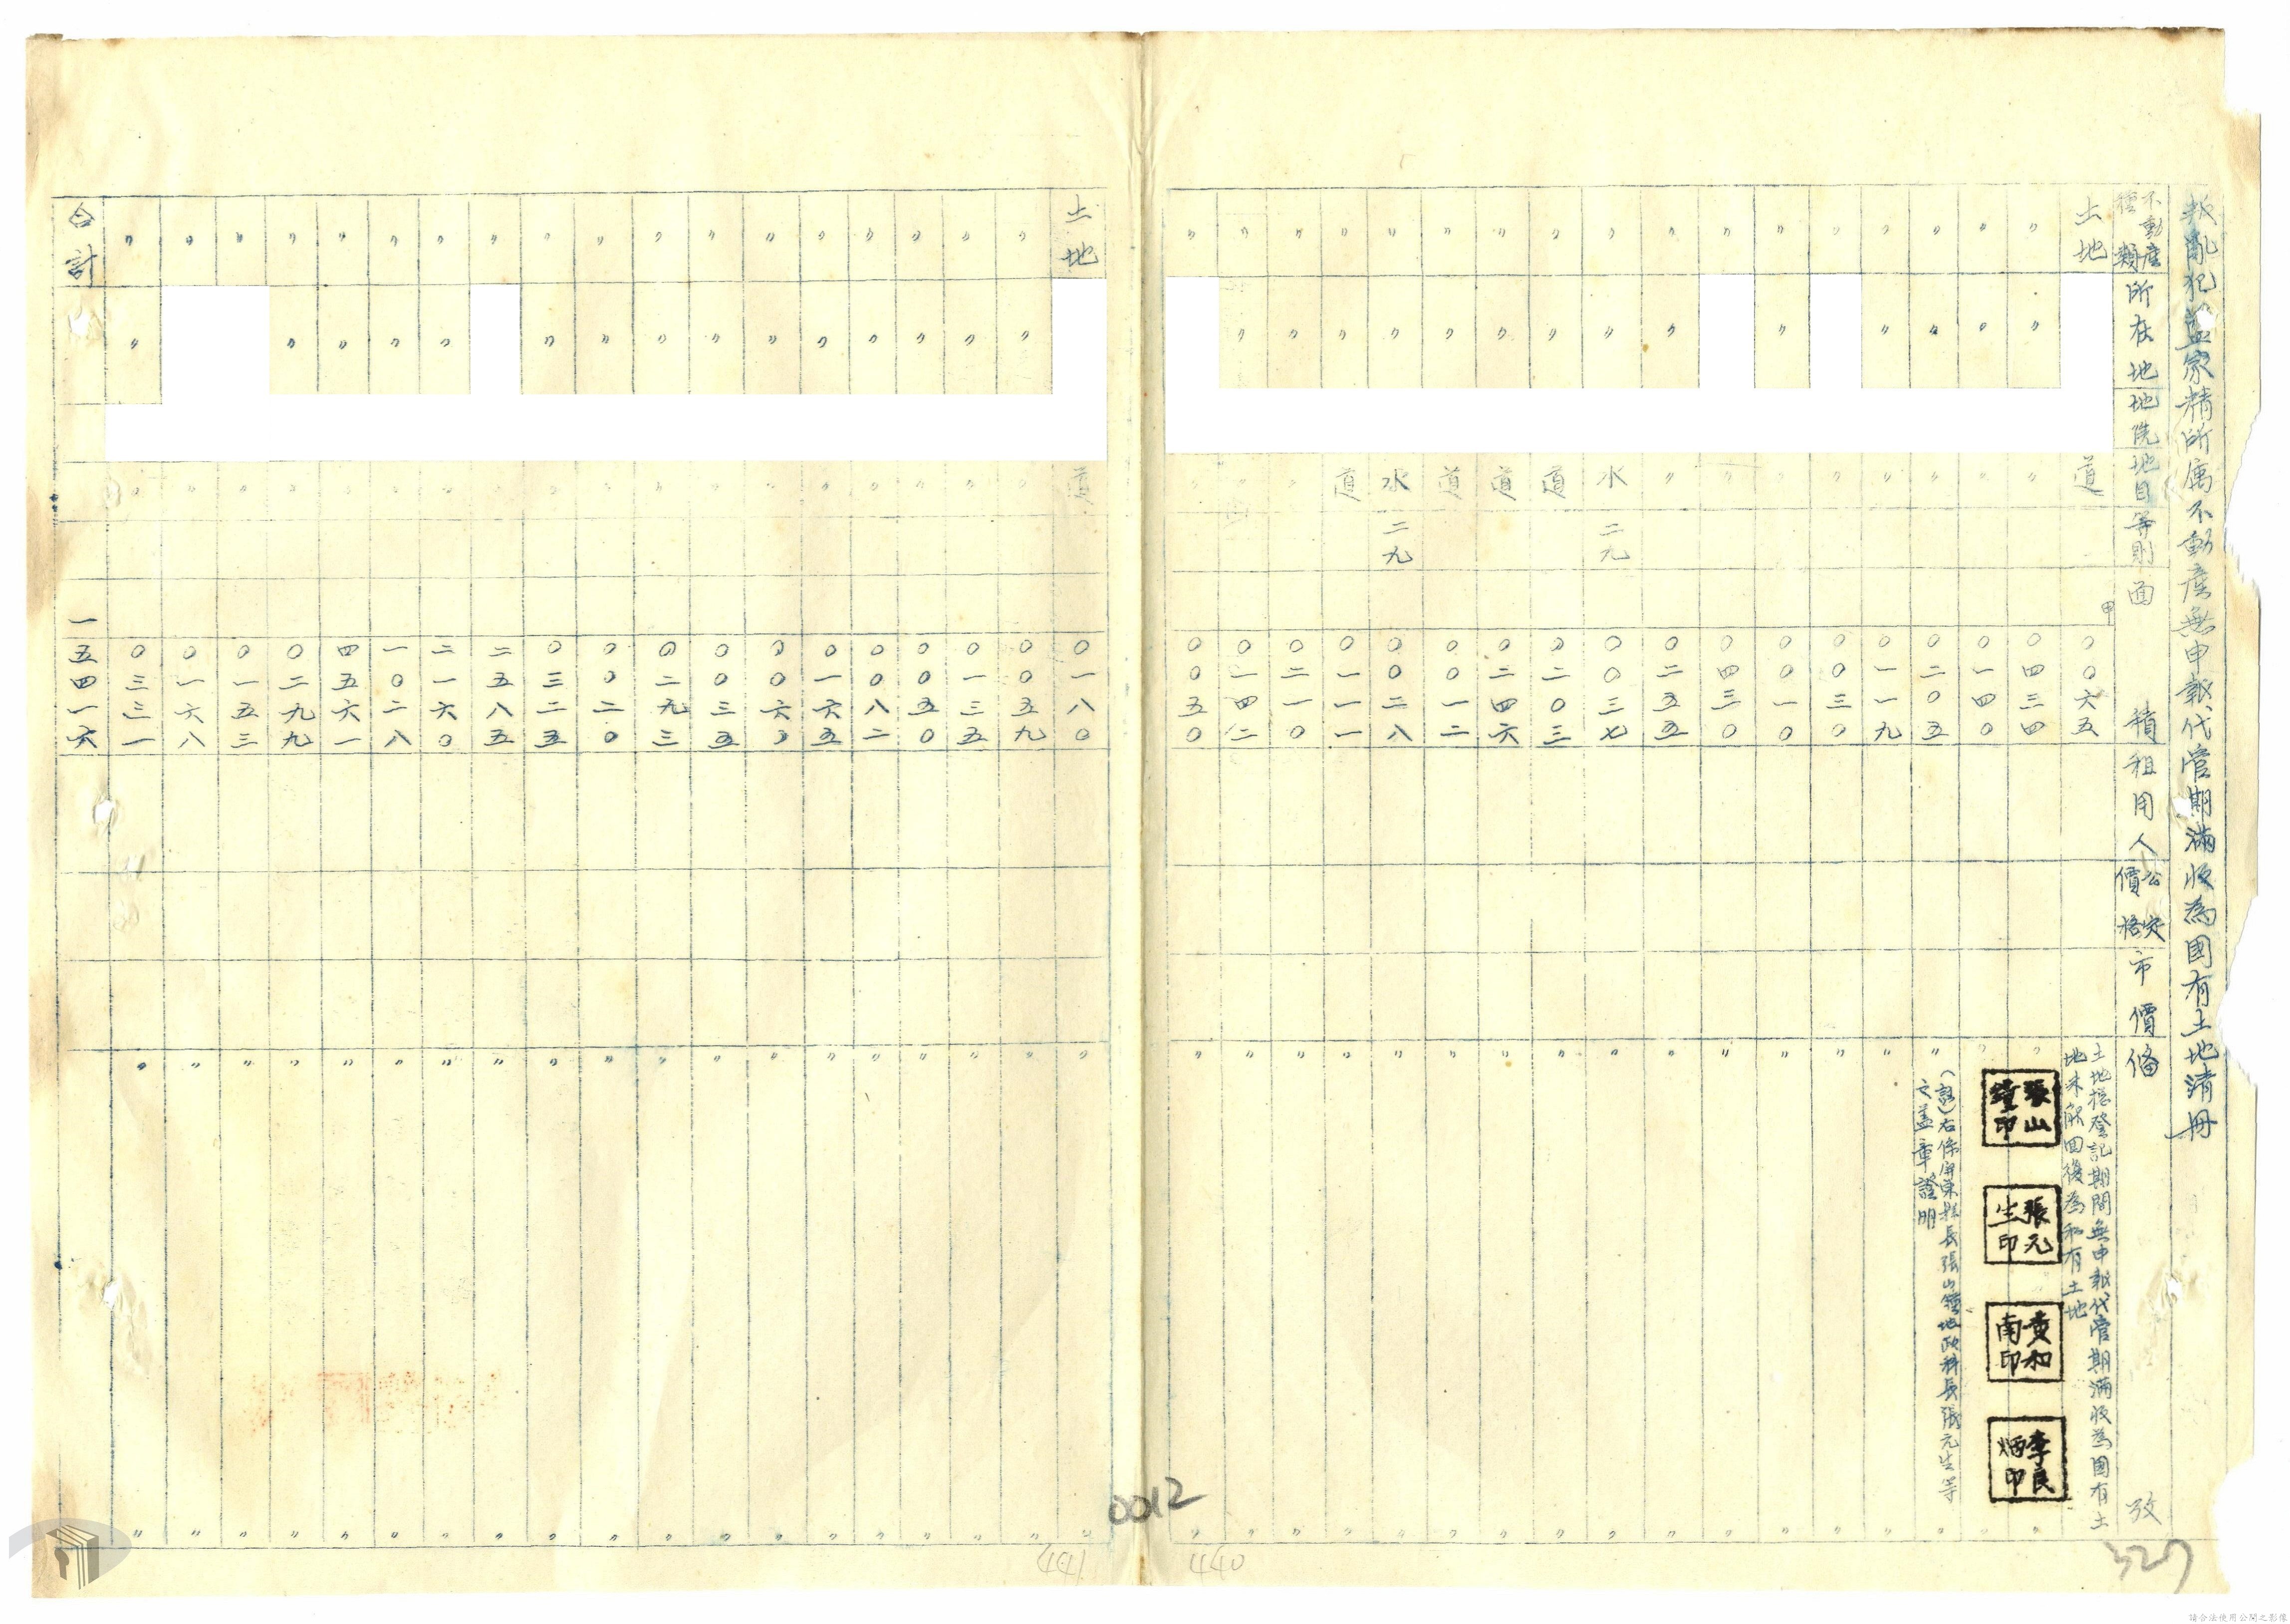 叛亂犯藍家精所屬不動產無申報代管期滿收為國有土地清冊
不動產種類 所在地 地號 地目 等則 面積 租用人 公定價格 市價 備攷
土地 道 甲 〇〇六五 土地總登記期間無申報代管期滿收為國有土
地未解回後為私有土地
〃 〃 〃 〇四三四 〃 〃
張山鐘印
張元生印
黃和南印
李良炳印
〃 〃 〃 〇一四〇 〃 〃
〃 〃 〃 〇二〇五 〃 〃
(註)右係屏東縣長張山鐘地政科長張元生等
文蓋章證明
〃 〃 〃 〇一一九 〃 〃
〃 〃 〇〇三〇 〃 〃
〃 〃 〃 〇〇一〇 〃 〃
〃 〃 〇四三〇 〃 〃
〃 〃 〃 〇二五五 〃 〃
〃 〃 水 二九 〇〇三七 〃 〃
〃 〃 道 〇二〇三 〃 〃
〃 〃 道 〇二四六 〃 〃
〃 〃 道 〇〇一二 〃 〃
〃 〃 水 二九 〇〇二八 〃 〃
〃 〃 道 〇一一一 〃 〃
〃 〃 〃 〇二一〇 〃 〃
〃 〃 〃 〇一四二 〃 〃
〃 〃 〇〇五〇 〃 〃
土地 道 〇一八〇 〃 〃
〃 〃 〃 〇〇五九 〃 〃
〃 〃 〃 〇一三五 〃 〃
〃 〃 〃 〇〇五〇 〃 〃
〃 〃 〃 〇〇八二 〃 〃
〃 〃 〃 〇一六五 〃 〃
〃 〃 〃 〇〇六〇 〃 〃
〃 〃 〃 〇〇三五 〃 〃
〃 〃 〃 〇二九三 〃 〃
〃 〃 〃 〇〇二〇 〃 〃
〃 〃 〃 〇三二五 〃 〃
〃 〃 二五八五 〃 〃
〃 〃 〃 二一六〇 〃 〃
〃 〃 〃 一〇二八 〃 〃
〃 〃 〃 四五六一 〃 〃
〃 〃 〃 〇二九九 〃 〃
〃 〃 〇一五三 〃 〃
〃 〃 〇一六八 〃 〃
〃 〃 〃 〇三三一 〃 〃
合計 一五四一六
0012
440
441
327
請合法使用公開之影像